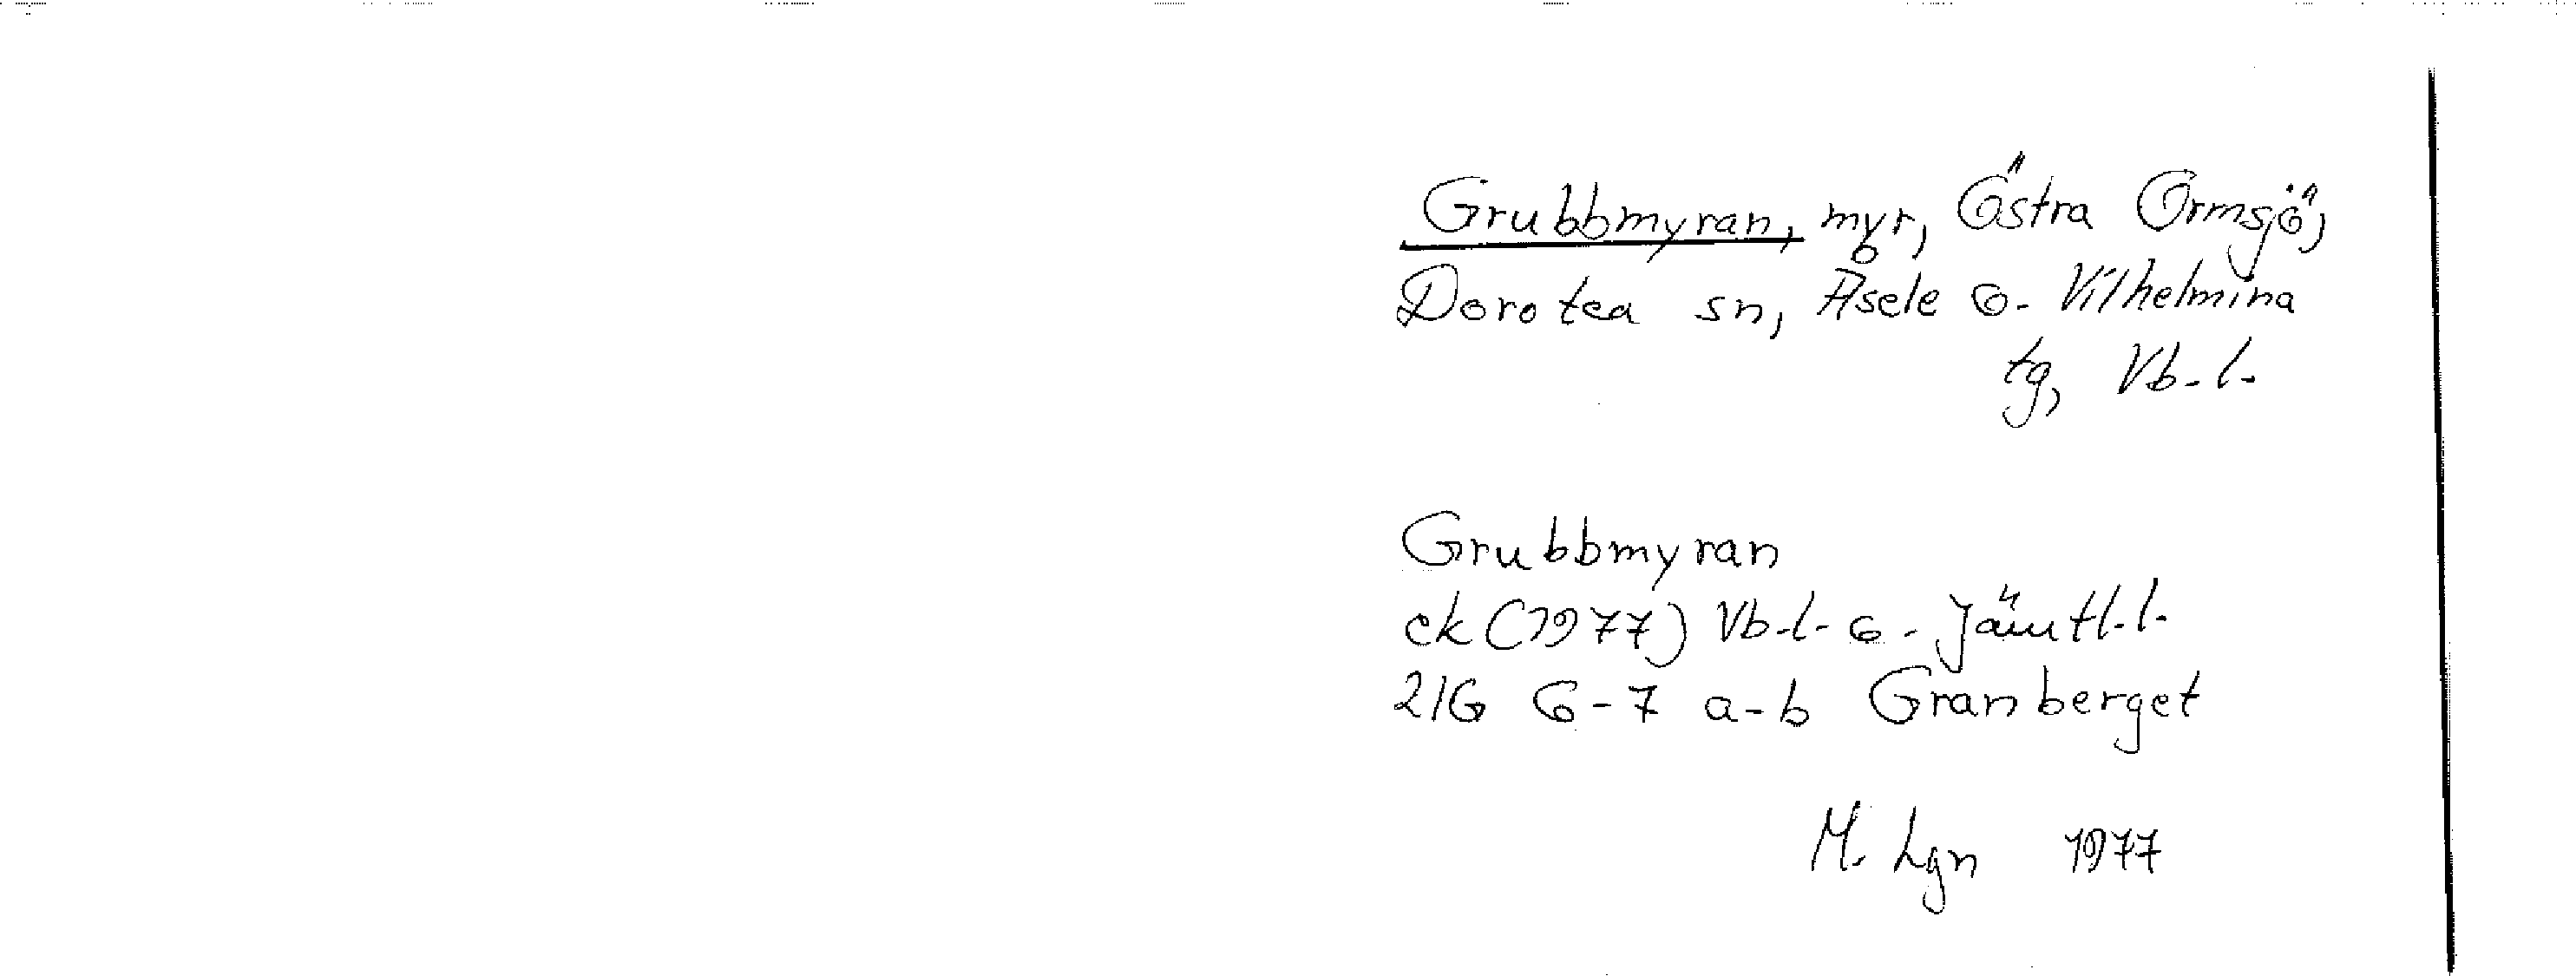 Grubbmyran, myr, Östra Ormsjö,
Dorotea sn, Åsele o. Vilhelmina
tg, Vb. l.
Grubbmyran
ek (1977) Vb. l. o. Jämtl. l.
21G 6-7 a-b Granberget
M. Lgn 1977